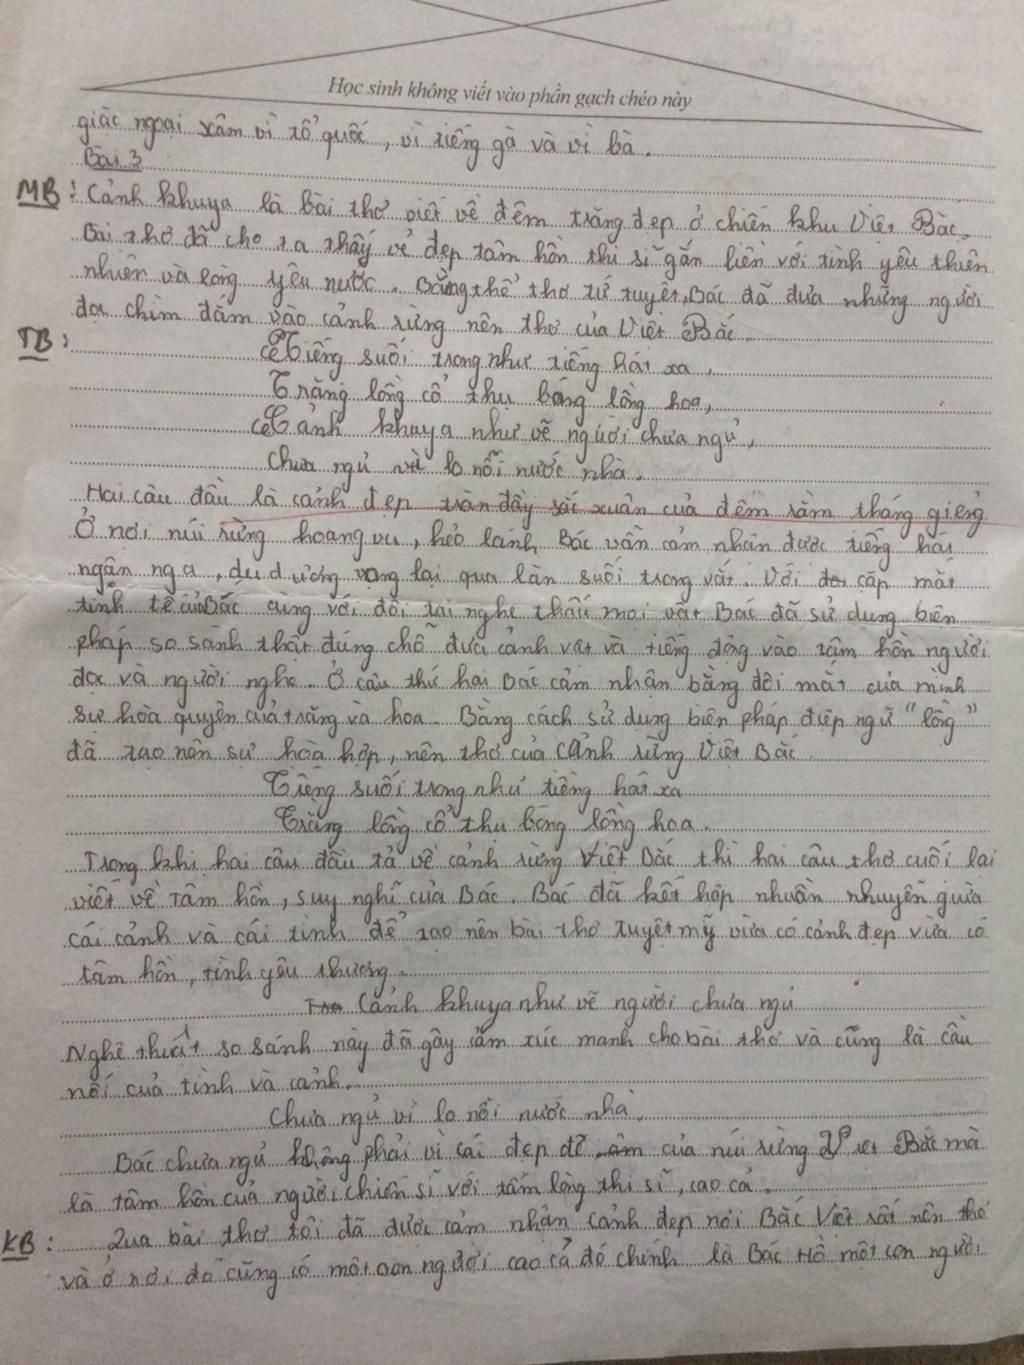 Học sinh không viết vào phần gạch chéo này
giặc ngoại xâm vì tổ quốc, vì tiếng gà và vì bà.
Bài 3
MB: Cảnh khuya là bài thơ viết về đêm trăng đẹp ở chiến khu Việt Bắc.
Bài thơ đã cho ta thấy vẻ đẹp tâm hồn thi sĩ gắn liền với tình yêu thiên
nhiên và lòng yêu nước. Bằng thể thơ tứ tuyệt, Bác đã đưa những người
đọc chìm đắm vào cảnh rừng nên thơ của Việt Bắc
TB:
Tiếng suối trong như tiếng hát xa,
Trăng lồng cổ thụ bóng lồng hoa,
Cảnh khuya như vẽ người chưa ngủ,
Chưa ngủ vì lo nỗi nước nhà.
Hai câu đầu là cảnh đẹp tràn đầy sắc xuân của đêm rằm tháng giêng
Ở nơi núi rừng hoang vu, hẻo lánh Bác vẫn cảm nhận được tiếng hát
ngân nga, du dương vọng lại qua làn suối trong vắt. Với cặp mắt
tinh tế của Bác cùng với đôi tai nghe thấu mọi vật Bác đã sử dụng biện
pháp so sánh thật đúng chỗ đưa cảnh vật và tiếng động vào tâm hồn người
đọc và người nghe. Ở câu thứ hai Bác cảm nhận bằng đôi mắt của mình
sự hòa quyện của trăng và hoa. Bằng cách sử dụng biện pháp điệp ngữ "lồng"
đã tạo nên sự hòa hợp, nên thơ của cảnh rừng Việt Bắc.
Tiếng suối trong như tiếng hát xa
Trăng lồng cổ thụ bóng lồng hoa.
Trong khi hai câu đầu tả về cảnh rừng Việt Bắc thì hai câu thơ cuối lại
viết về tâm hồn, suy nghĩ của Bác. Bác đã kết hợp nhuần nhuyễn giữa
cái cảnh và cái tình để tạo nên bài thơ tuyệt mỹ vừa có cảnh đẹp vừa có
tâm hồn, tình yêu thương.
Cảnh khuya như vẽ người chưa ngủ
Nghệ thuật so sánh này đã gây cảm xúc mạnh cho bài thơ và cũng là cầu
nối của tình và cảnh.
Chưa ngủ vì lo nỗi nước nhà.
Bác chưa ngủ không phải vì cái đẹp của núi rừng Việt Bắc mà
là tâm hồn của người chiến sĩ với tấm lòng thi sĩ, cao cả.
KB: Qua bài thơ tôi đã được cảm nhận cảnh đẹp nơi Bắc Việt rất nên thơ
và ở nơi đó cũng có một con người cao cả đó chính là Bác Hồ một con người